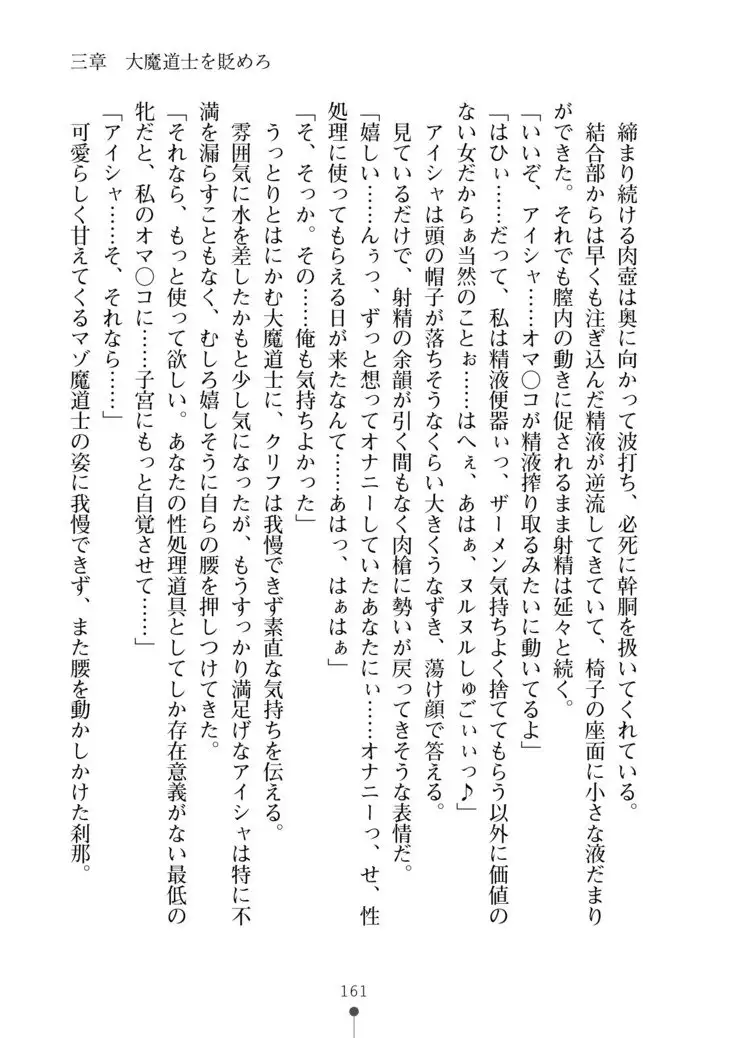 三章　大魔道士を貶めろ
締まり続ける肉壺は奥に向かって波打ち、必死に幹胴を扱いてくれている。
結合部からは早くも注ぎ込んだ精液が逆流してきていて、椅子の座面に小さな液だまり
ができた。それでも膣内の動きに促されるまま射精は延々と続く。
「いいぞ、アイシャ……オマ〇コが精液搾り取るみたいに動いてるよ」
「はひぃ……だって、私は精液便器ぃっ、ザーメン気持ちよく捨ててもらう以外に価値の
ない女だからぁ当然のことぉ……はへぇ、あはぁ、ヌルヌルしゅごいぃっ♪」
アイシャは頭の帽子が落ちそうなくらい大きくうなずき、蕩け顔で答える。
見ているだけで、射精の余韻が引く間もなく肉槍に勢いが戻ってきそうな表情だ。
「嬉しい……んぅっ、ずっと想ってオナニーしていたあなたにぃ……オナニーっ、せ、性
処理に使ってもらえる日が来たなんて……あはっ、はぁはぁ」
「そ、そっか。その……俺も気持ちよかった」
うっとりとはにかむ大魔道士に、クリフは我慢できず素直な気持ちを伝える。
雰囲気に水を差したかもと少し気になったが、もうすっかり満足げなアイシャは特に不
満を漏らすこともなく、むしろ嬉しそうに自らの腰を押しつけてきた。
「それなら、もっと使って欲しい。あなたの性処理道具としてしか存在意義がない最低の
牝だと、私のオマ〇コに……子宮にもっと自覚させて……」
「アイシャ……そ、それなら……」
可愛らしく甘えてくるマゾ魔道士の姿に我慢できず、また腰を動かしかけた刹那。
161